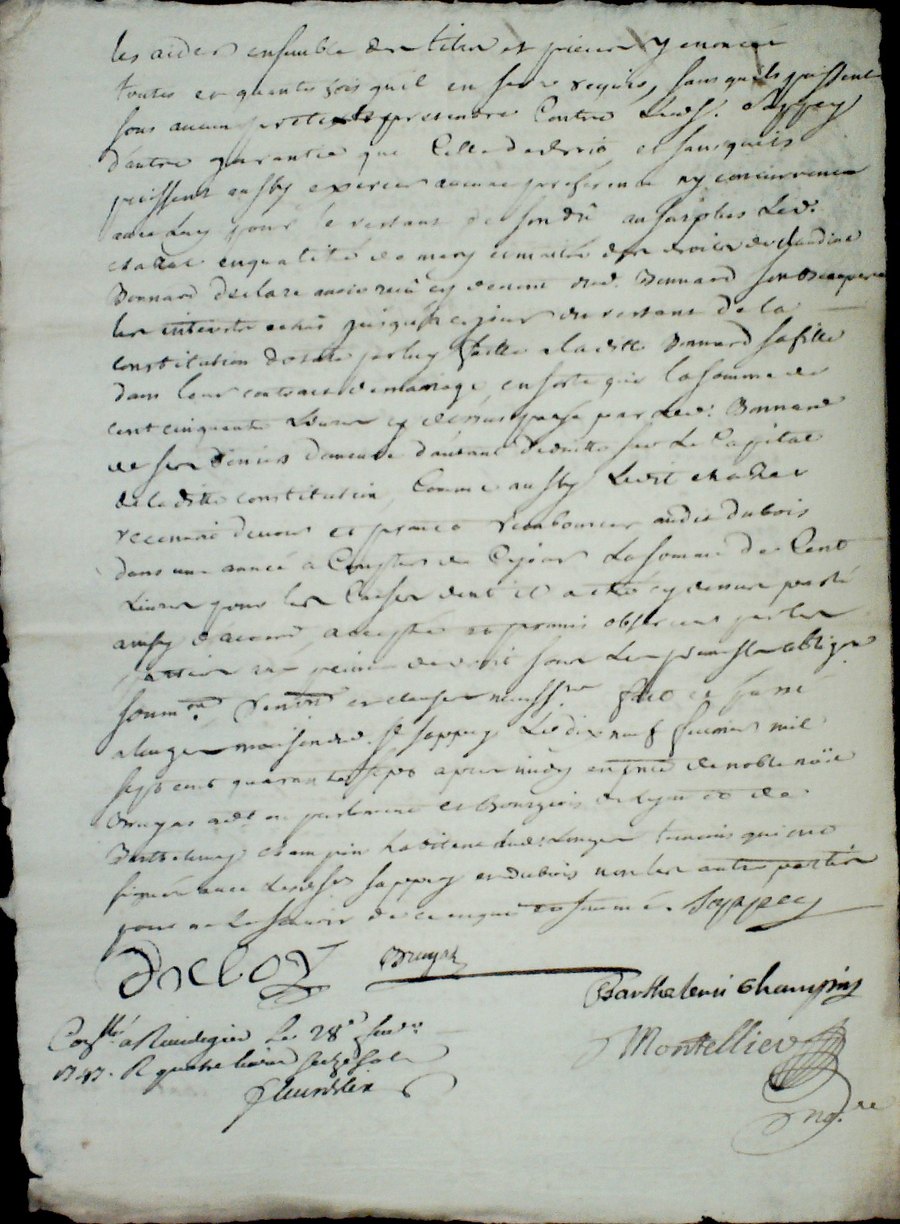 les aider ensemble des titres et pieces y enoncée
toutes et quantes fois quil en sera requis, sans quils puissent
sous aucun pretexte pretendre Contre Led. Sr. Sappey
dautre garantie que Celle de droit et sans quils
puissent aussy exercer aucune preference ny concurrence
avec Luy pour le restant de son dû au surplus Led.
chatal en qualité de mary et maitre des droits de claudine
Bonnard declare avoir reçu cy devant dud. Bonnard son beaupere
les interets echus jusqua ce jour du restant de la
constitution dotale par luy faitte a laditte Bonnard sa fille
dans leur contract de mariage en sorte que la somme de
cent cinquante Livres cy dessus payé par Led. Bonnard
de ses deniers demeure dautant deduitte sur Le Capital
de laditte constitution, Comme aussy Ledit chatal
reconnoit devoir et promet rembourser audit dubois
dans une année a Compter de Ce jour La somme de Cent
Livres pour les Causes dont il a été cy dessus parlé
ainsy daccord, accepté et promis observer par les
parties aux peines de droit sous Les presentes obliga
soum.on renon.on et clauses necess.re fait et passé
a Luzger maison dud. Sr Sappey Le dix neuf fevrier mil
sept cent quarante sept apres midy en p.nce de noble noë
Bruyas adt en parlement et Bourgeois de Lyon et de
Barthelemy champin habitant dud. Luzger temoins qui ont
signé avec Lesd. Srs Sappey et dubois non les autres parties
pour ne le sçavoir de ce enquis et sommé. Sappey
Duboy Bruyas
Barthelemi Champin
Con.llé a Rivedegier Le 28e fev.er
1747. R quatre livre seize sols
Montellier
no.re